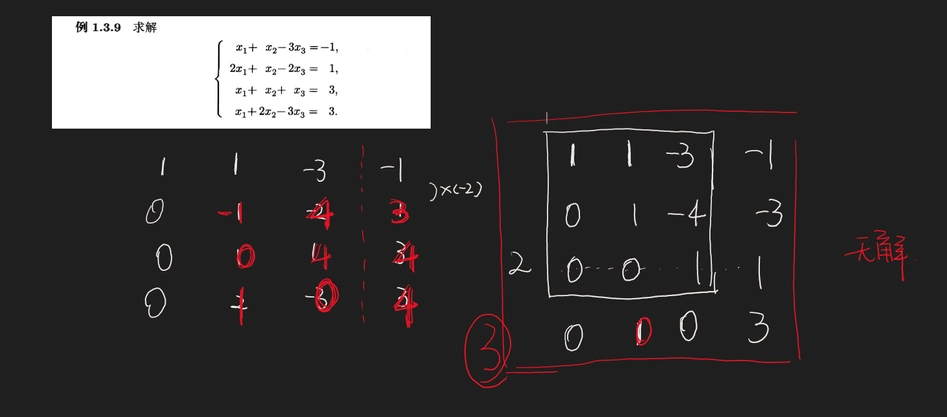 例 1.3.9 求解
x₁+ x₂−3x₃=−1,
2x₁+ x₂−2x₃= 1,
x₁+ x₂+ x₃= 3,
x₁+2x₂−3x₃= 3.
1 1 -3 -1
)×(-2)
0 -1 4 3
0 0 4 4
0 1 0 4
1 1 -3 -1
0 1 -4 -3
2 0 0 1 1
0 0 0 3
3
无解